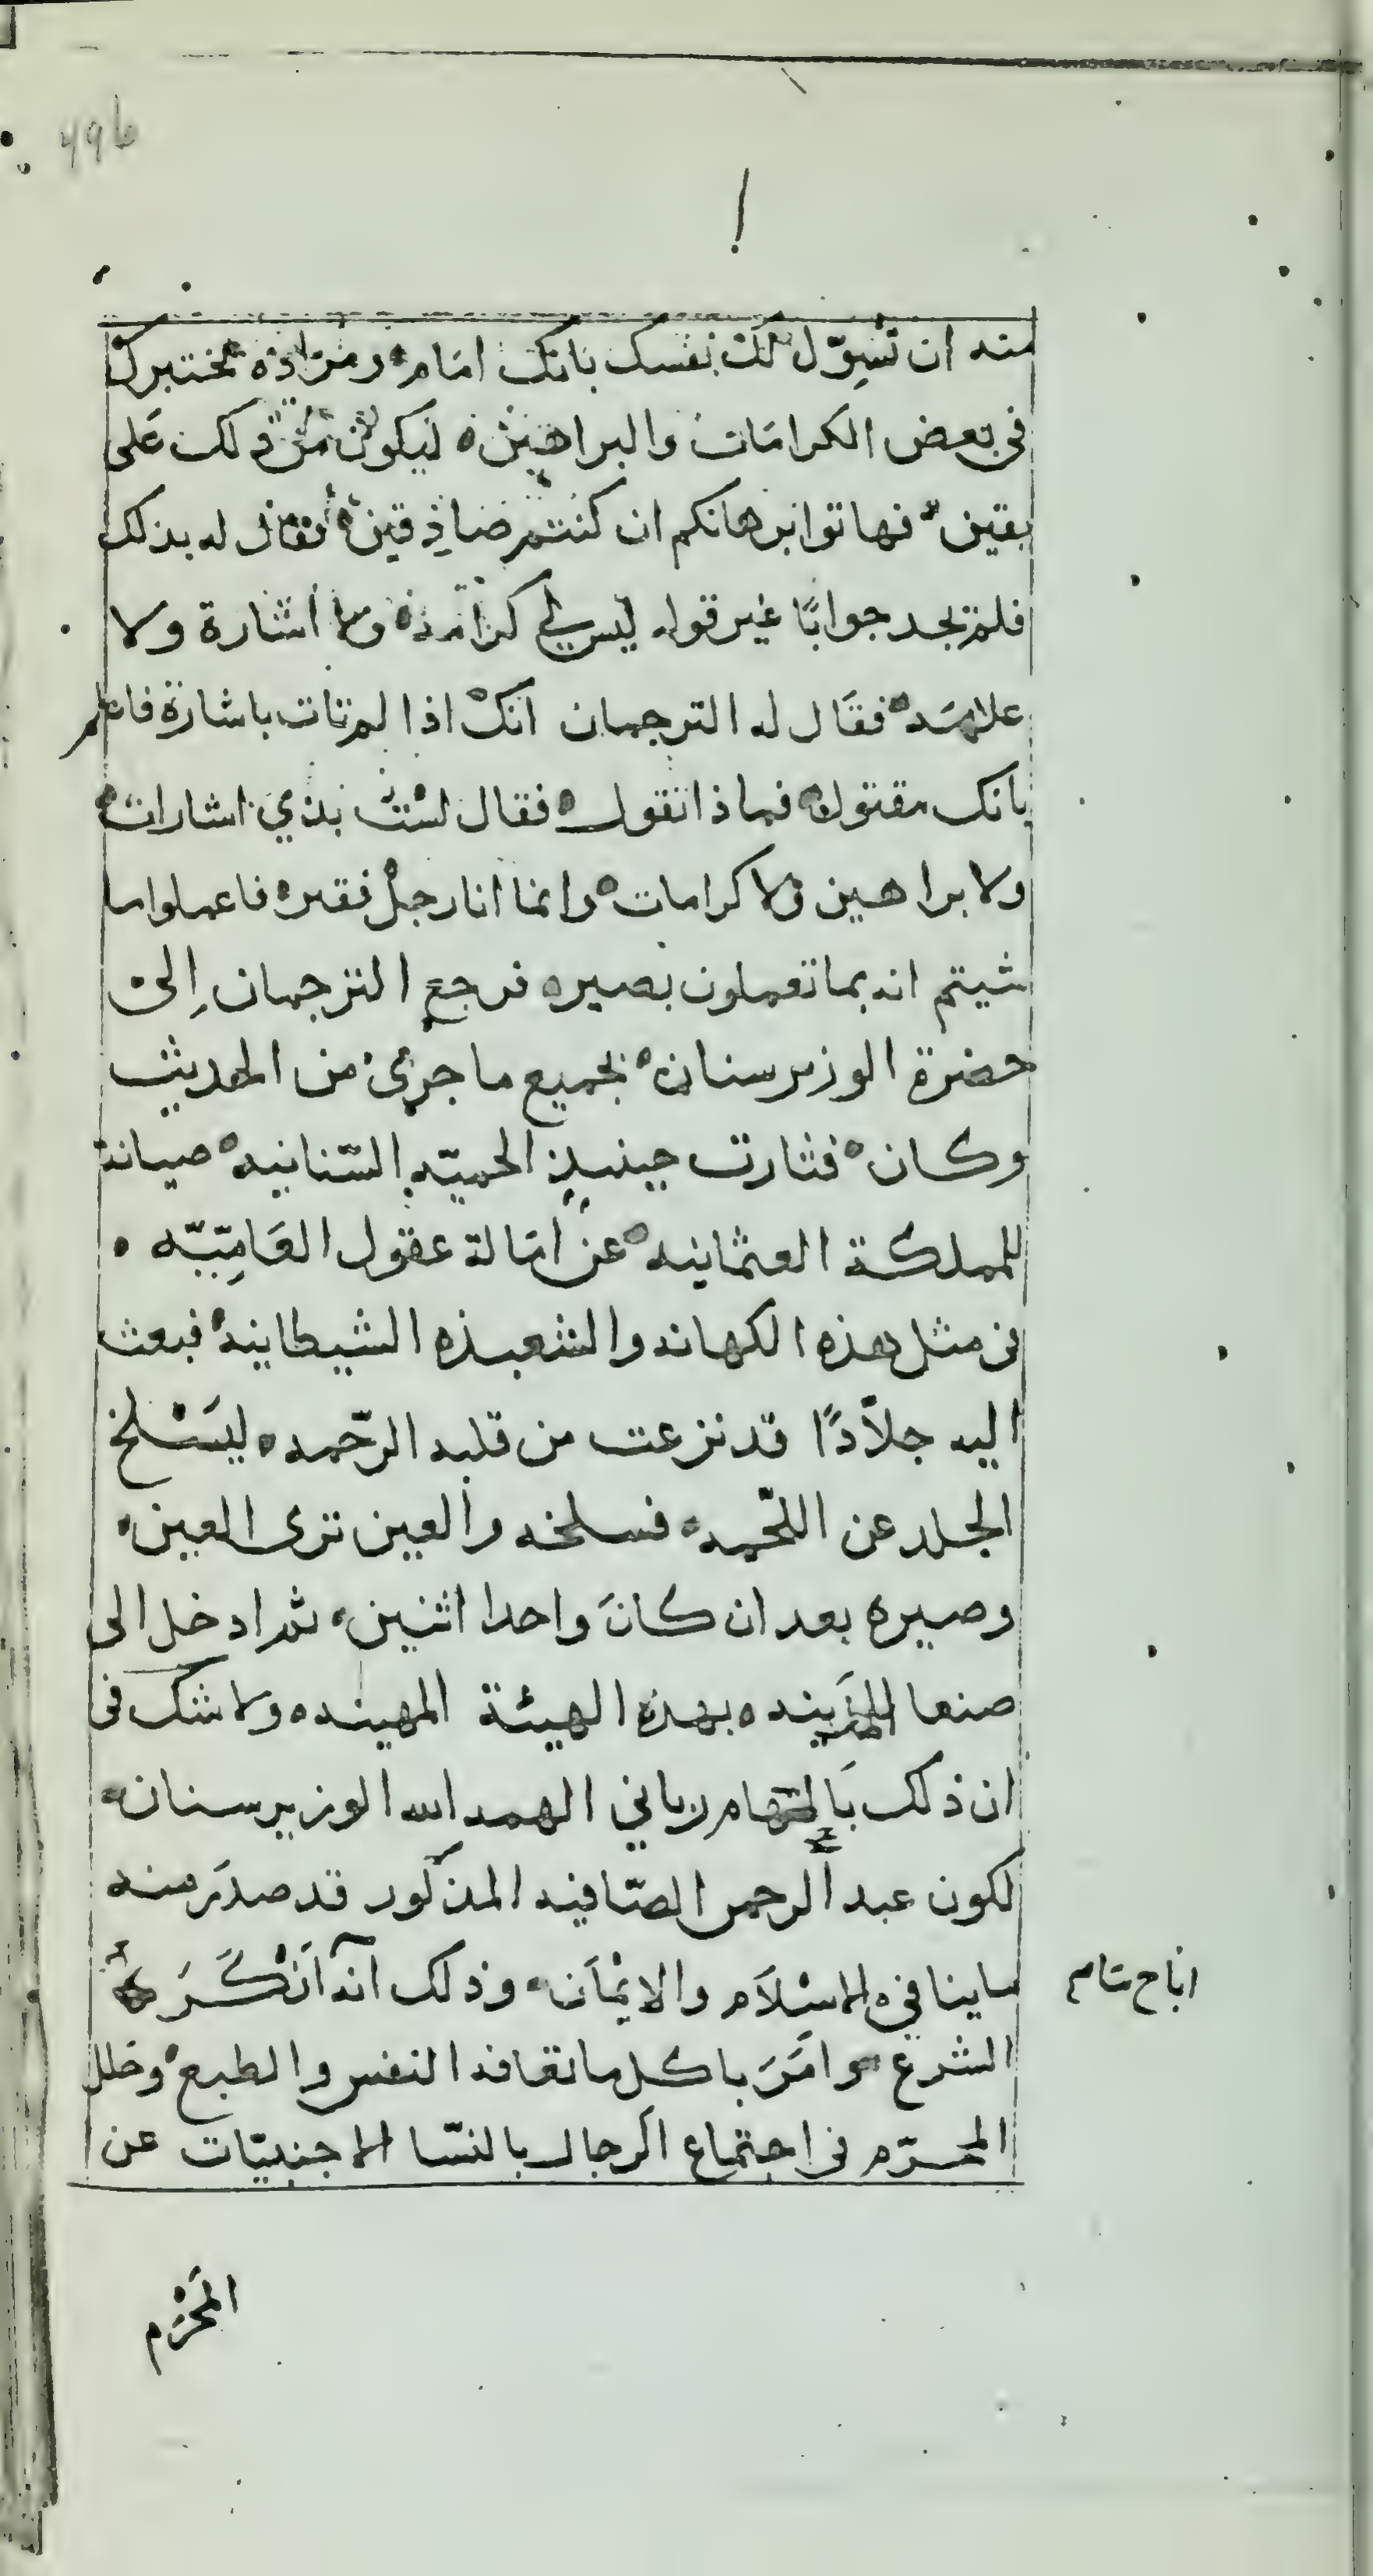 496
منه ان تسوّل لك نفسك بانك امام ومراده يختبرك
في بعض الكرامات والبراهين ليكون من ذلك على
يقين فهاتوا برهانكم ان كنتم صادقين فقال له بذلك
فلم يجد جوابًا غير قوله ليس لي كرامه ولا اشارة ولا
علامه فقال له الترجمان انك اذا لم تات باشارة فاعلم
بانك مقتول فماذا تقول فقال لست بذي اشارات
ولا براهين ولا كرامات وانما انا رجل فقير فاعملوا ما
شيتم انه بما تعملون بصير فرجع الترجمان إلى
حضرة الوزير سنان بجميع ما جرى من الحديث
وكان فثارت حينيذٍ الحميّه السّنانيه صيانة
للمملكة العثمانيه عن امالة عقول العَامِيّه
في مثل هذه الكهانه والشعبذه الشيطانيه فبعث
اليه جلاّدًا قد نزعت من قلبه الرّحمه ليَسْلخ
الجلد عن اللّحمه فسلخه والعين ترى العين
وصيره بعد ان كانَ واحدا اثنين ثم ادخل الى
صنعا المزَينه بهذه الهيئة المهينه ولا شك في
ان ذلك بَالهام رباني الهمه الله الوزير سنان
لكون عبد الرحمن المذكور قد صدَر منه
ما ينافي الاسْلاَم والايمَان وذلك انه اَنْكَرَ
الشرع وامَرَ باكل ما تعافه النفس والطبع وحلل
المحرّم في اجتماع الرجال بالنسّا الاجنبيّات عن
المَحْرَم